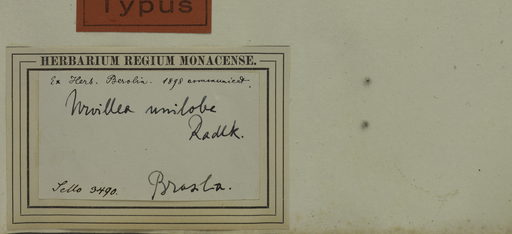 Typus
HERBARIUM REGIUM MONACENSE.
Ex Herb. Berolin. 1898 communicat.
Urvillea uniloba
Radlk.
Sello 3490. Brasilia.